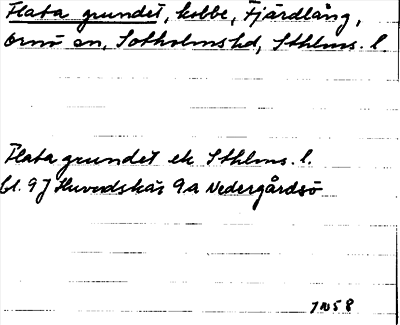 Flata grundet, kobbe, Fjärdlång,
Ornö sn, Sotholms hd, Sthlms. l.
Flata grundet ek Sthlms. l.
bl. 9 J Huvudskär 9 a Nedergårdsö
1958